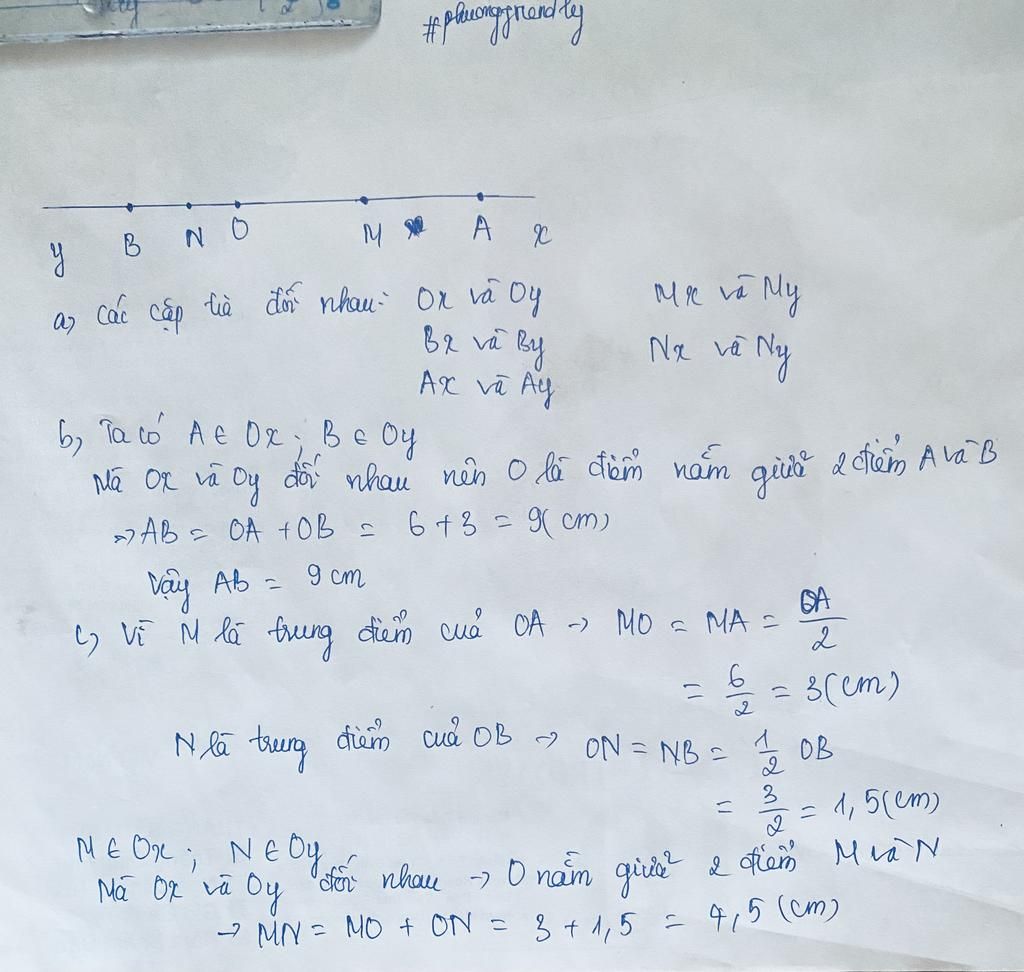 #phuongfriendly
y B N O M A x
a, Các cặp tia đối nhau: Ox và Oy Mx và My
Bx và By Nx và Ny
Ax và Ay
b, Ta có A ∈ Ox ; B ∈ Oy
Mà Ox và Oy đối nhau nên O là điểm nằm giữa 2 điểm A và B
=> AB = OA + OB = 6 + 3 = 9 (cm)
Vậy AB = 9 cm
c, Vì M là trung điểm của OA → MO = MA = OA/2
= 6/2 = 3 (cm)
N là trung điểm của OB → ON = NB = 1/2 OB
= 3/2 = 1,5 (cm)
M ∈ Ox ; N ∈ Oy
Mà Ox và Oy đối nhau → O nằm giữa 2 điểm M và N
→ MN = MO + ON = 3 + 1,5 = 4,5 (cm)